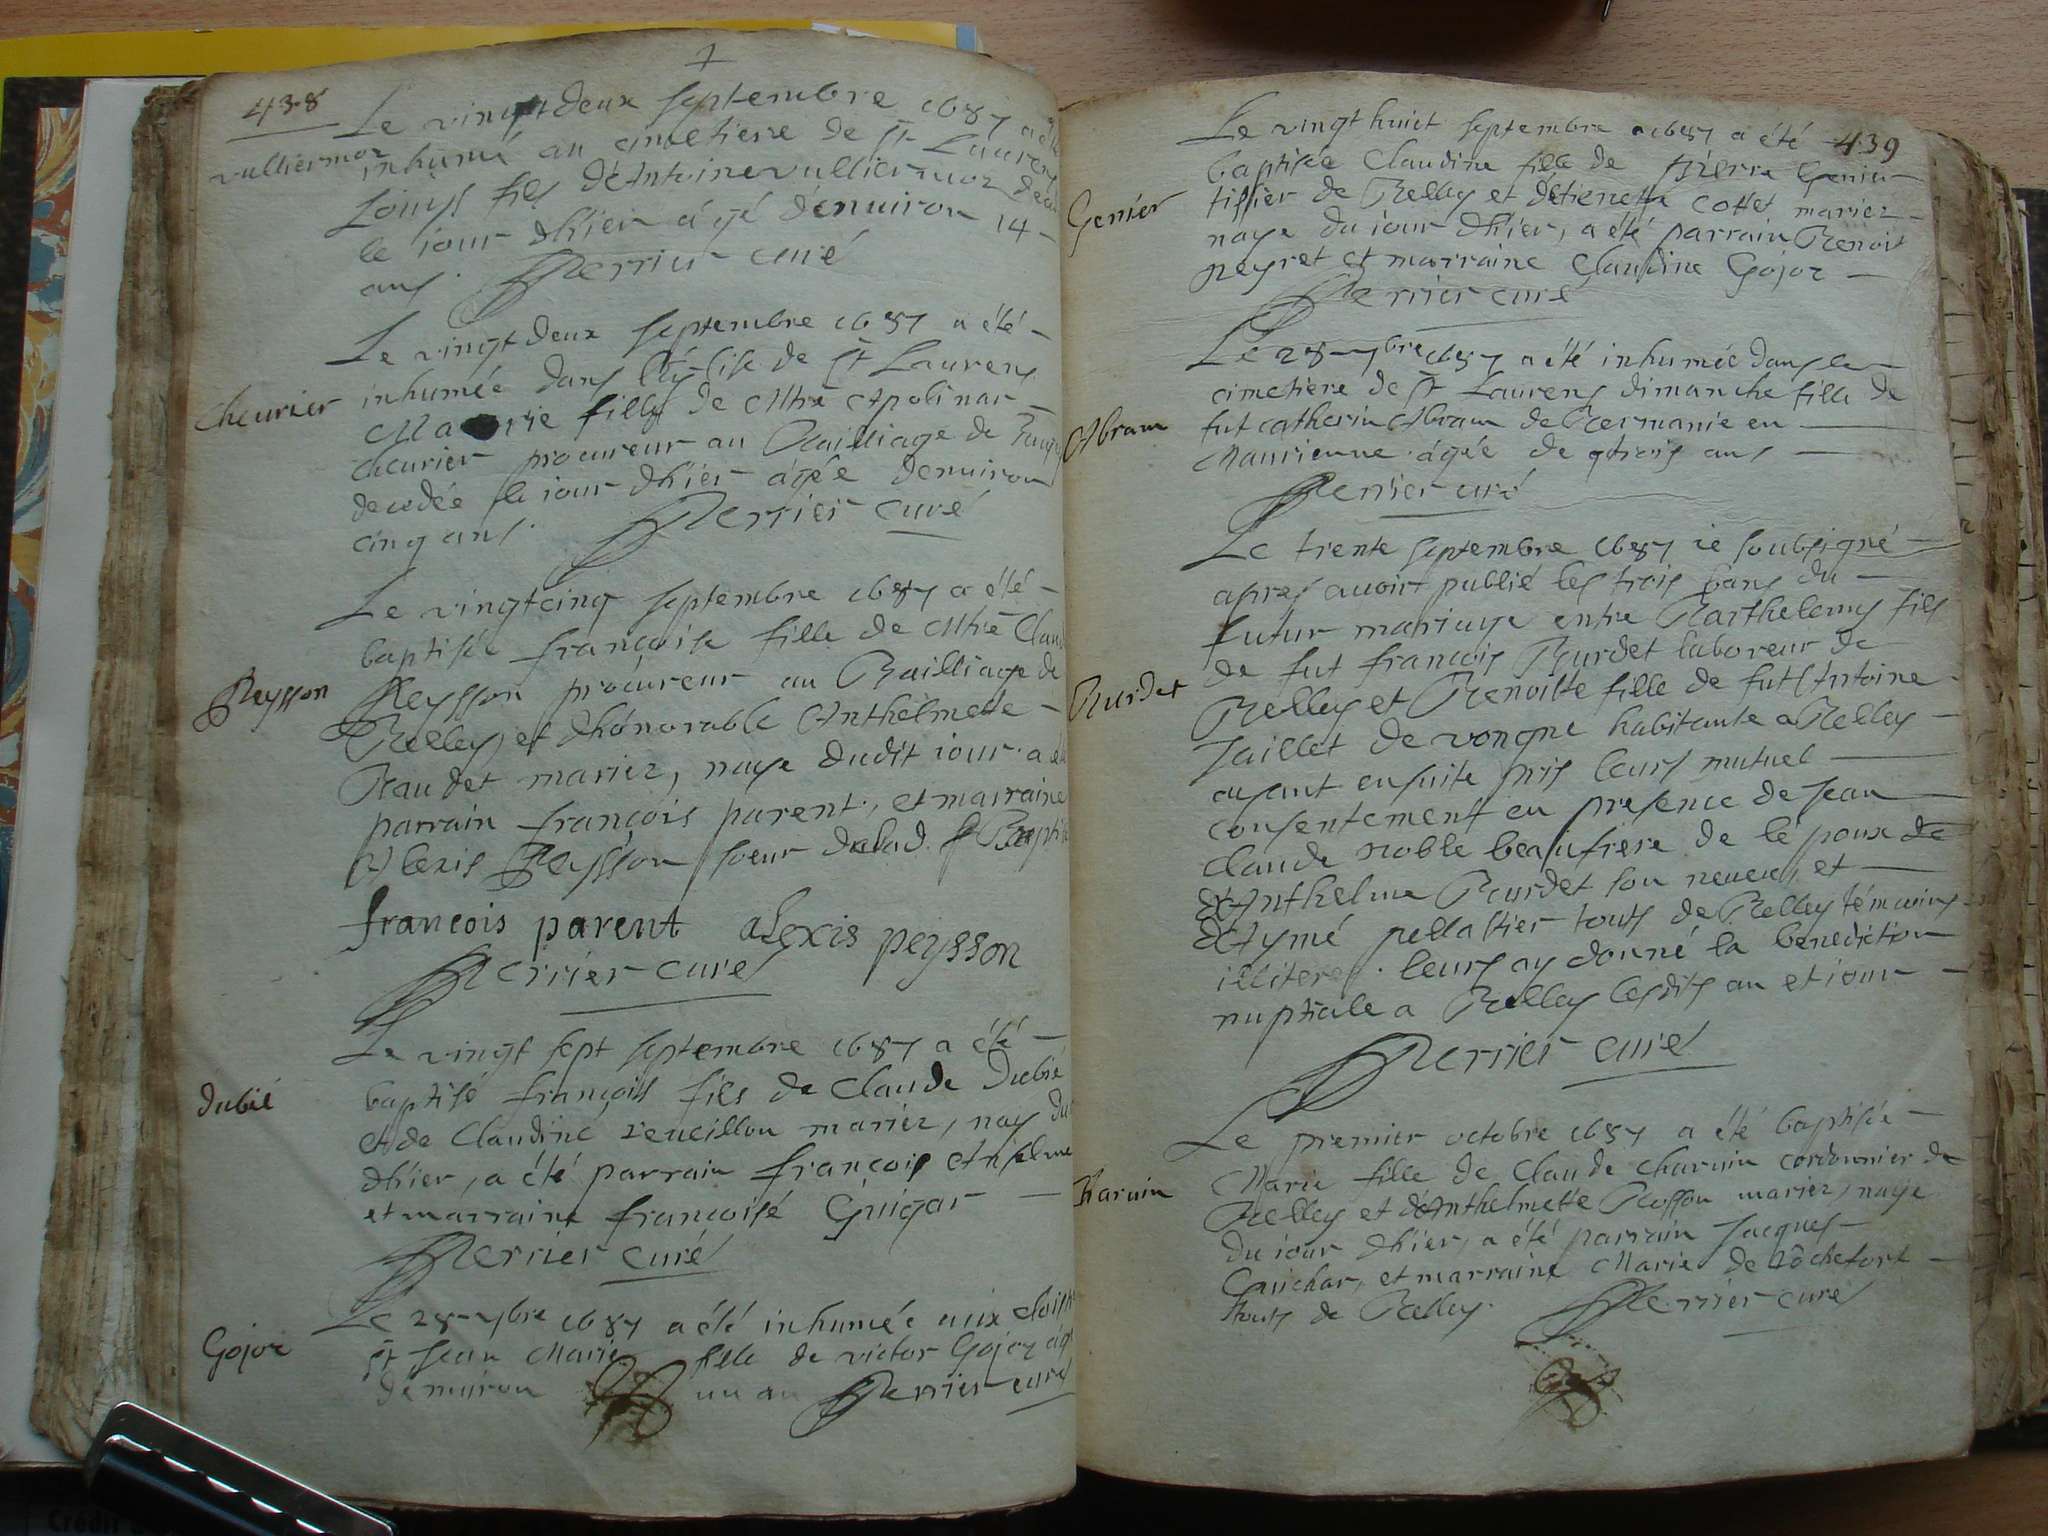 438
Le vingt deux septembre 1687 a été
vulliermoz
inhumé au cimetiere de St Laurens
Louys fils d'Antoine vulliermoz
le jour dhier agé denuiron 14
ans. Perrier curé
Le vingt deux septembre 1687 a été
Cheurier
inhumée dans l'églis​e de St Laurens
Marie fille de Mtre Apolinar
cheurier procureur au Bailliage de
decedée le iour dhier agée denuiron
cinq ans. Perrier curé
Le vingt cinq septembre 1687 a été
baptisée françoise fille de Mtre Claude
Peysson
Peysson procureur au Bailliage de
Belley, et dhonorable Anthelmette
Baudet mariez, naye dudit iour. a été
parrain françois parent, et marraine
Alexis Peysson soeur
francois parent alexis peysson
Perrier curé
Le vingt sept septembre 1687 a été
Dubié
baptisé françois fils de Claude Dubié
et de Claudine reueillon mariez, nay du
dhier, a été parrain françois Anselme
et marraine françoise Guigar
Perrier curé
Le 28 7bre 1687 a été inhumée aux
Gojoz
St Jean Marie fille de victor Gojoz
denuiron un an Perrier curé
439
Le vingt huict septembre 1687 a été
baptisée Claudine fille de Pierre Genier
Genier
tissier de Belley et detienette Cottet mariez
naye du iour dhier, a été parrain Benoit
peyret et marraine Claudine Gojoz
Perrier curé
Le 28 7bre 1687 a été inhumée dans le
cimetiere de St Laurens dimanche fille de
Abram
fut catherin Abram de Bermanie en
Maurienne agée de trois ans
Perrier curé
Le trente septembre 1687 ie soubsigné
apres auoir publié les trois bans du
futur mariage entre Barthelemy fils
Burdet
de fut françois Burdet laboreur de
Belley et Benoiste fille de fut Antoine
Jaillet de vongne habitante a Belley
ayant ensuite pris leurs mutuel
consentement en presence de Jean
Claude Noble beaufrere de lepoux de
d'Anthelme Burdet son neueu, et
d'Aymé pellastier touts de Belley témoins
illiteres. leurs ay donné la benediction
nuptiale a Belley lesdits an et iour
Perrier curé
Le premier octobre 1687 a été baptisée
Charuin
Marie fille de Claude charuin cordonnier de
Belley et d'Anthelmette Rosson mariez, naye
du iour dhier, a été parrain Jacques
Guichar, et marraine Marie de Rochefort
touts de Belley. Perrier curé